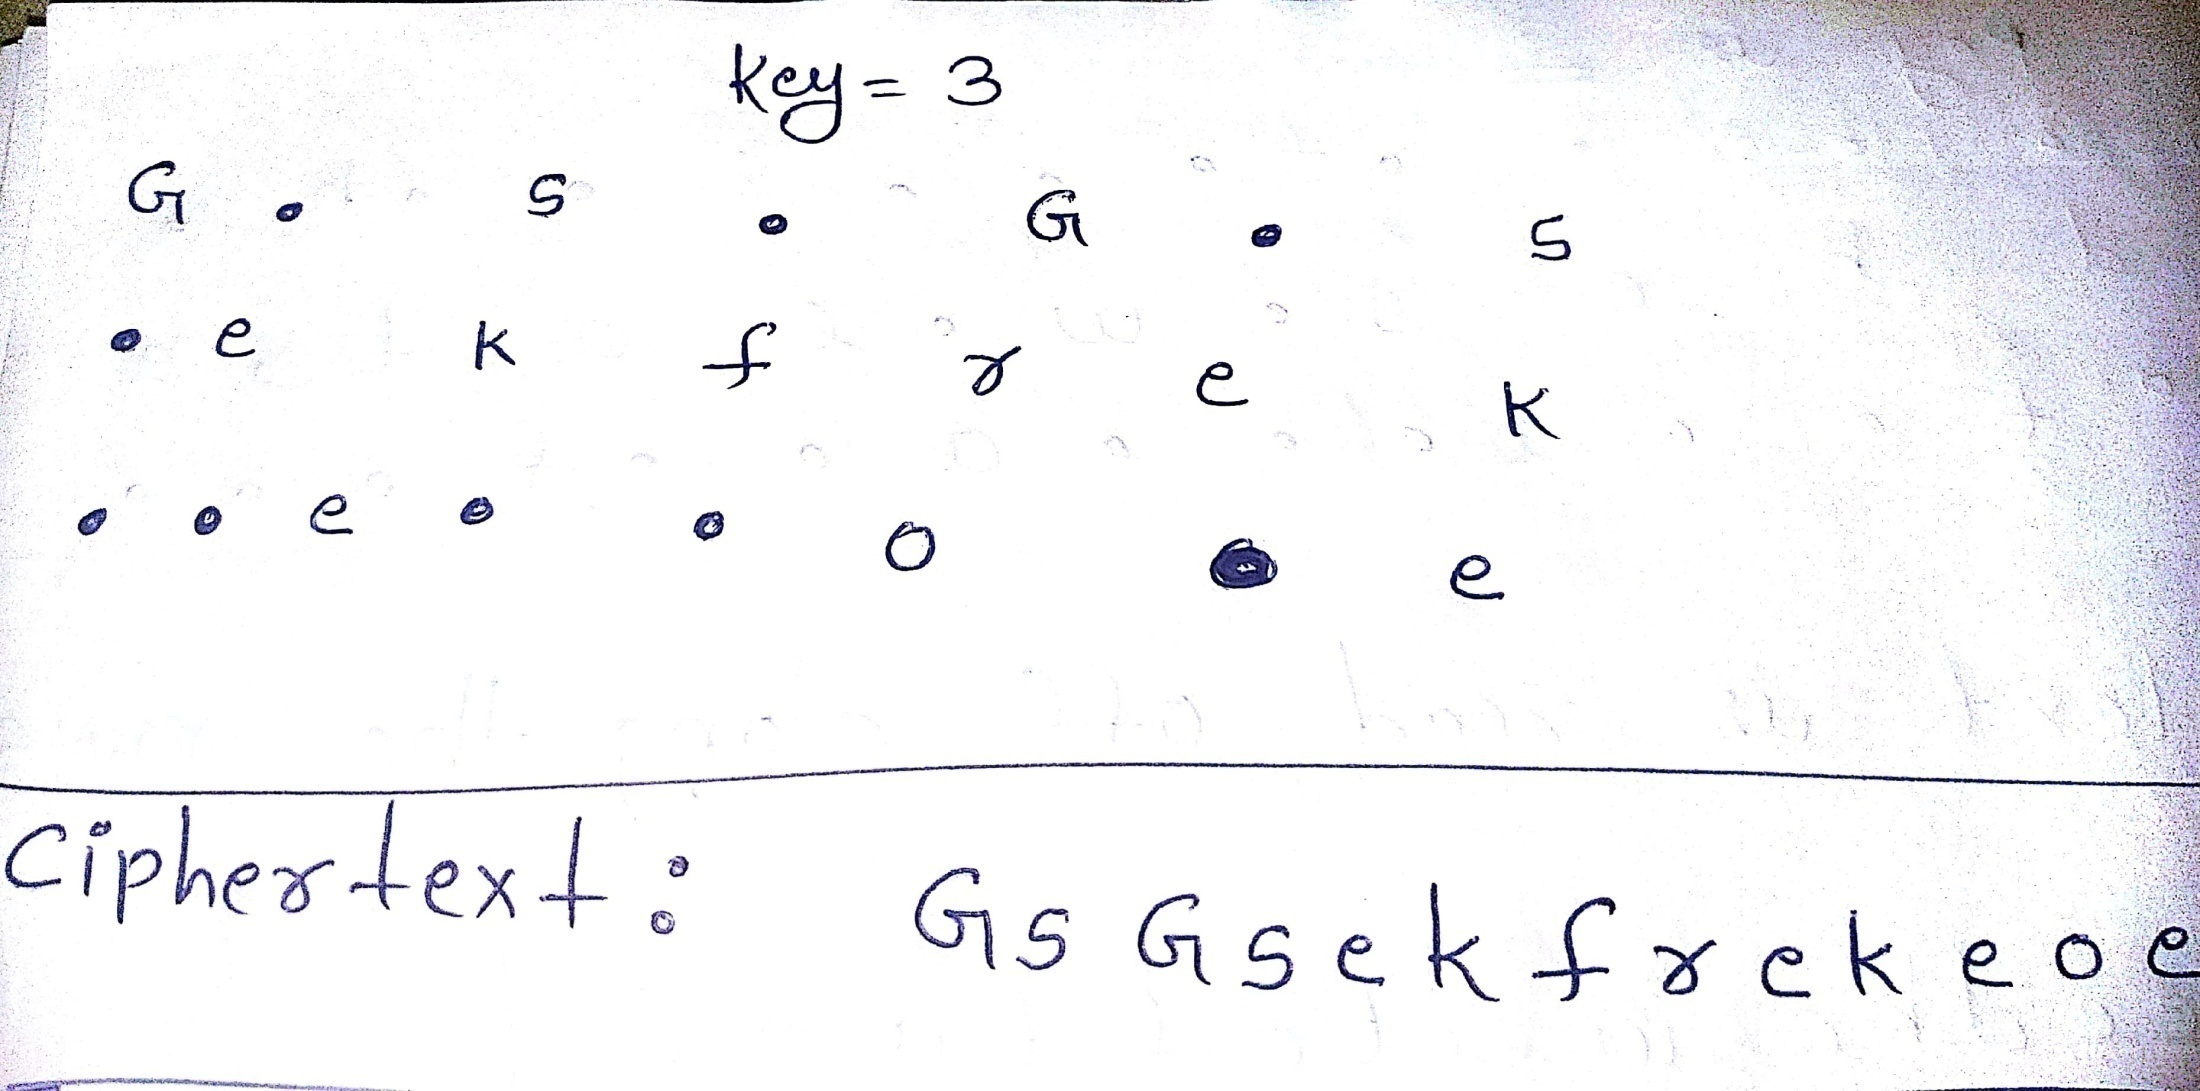 Key = 3
G . s . G . s
. e k f r e k
. . e . . o . e
Ciphertext : GsGsekfrekeoe